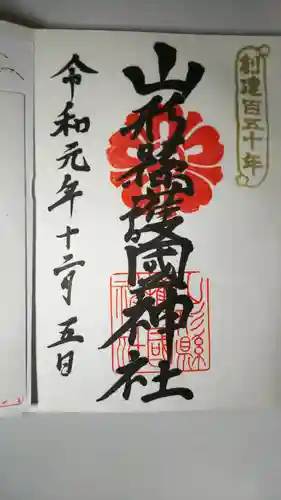 創建百五十年
山形縣護國神社
令和元年十二月五日
山形縣
護國
神社